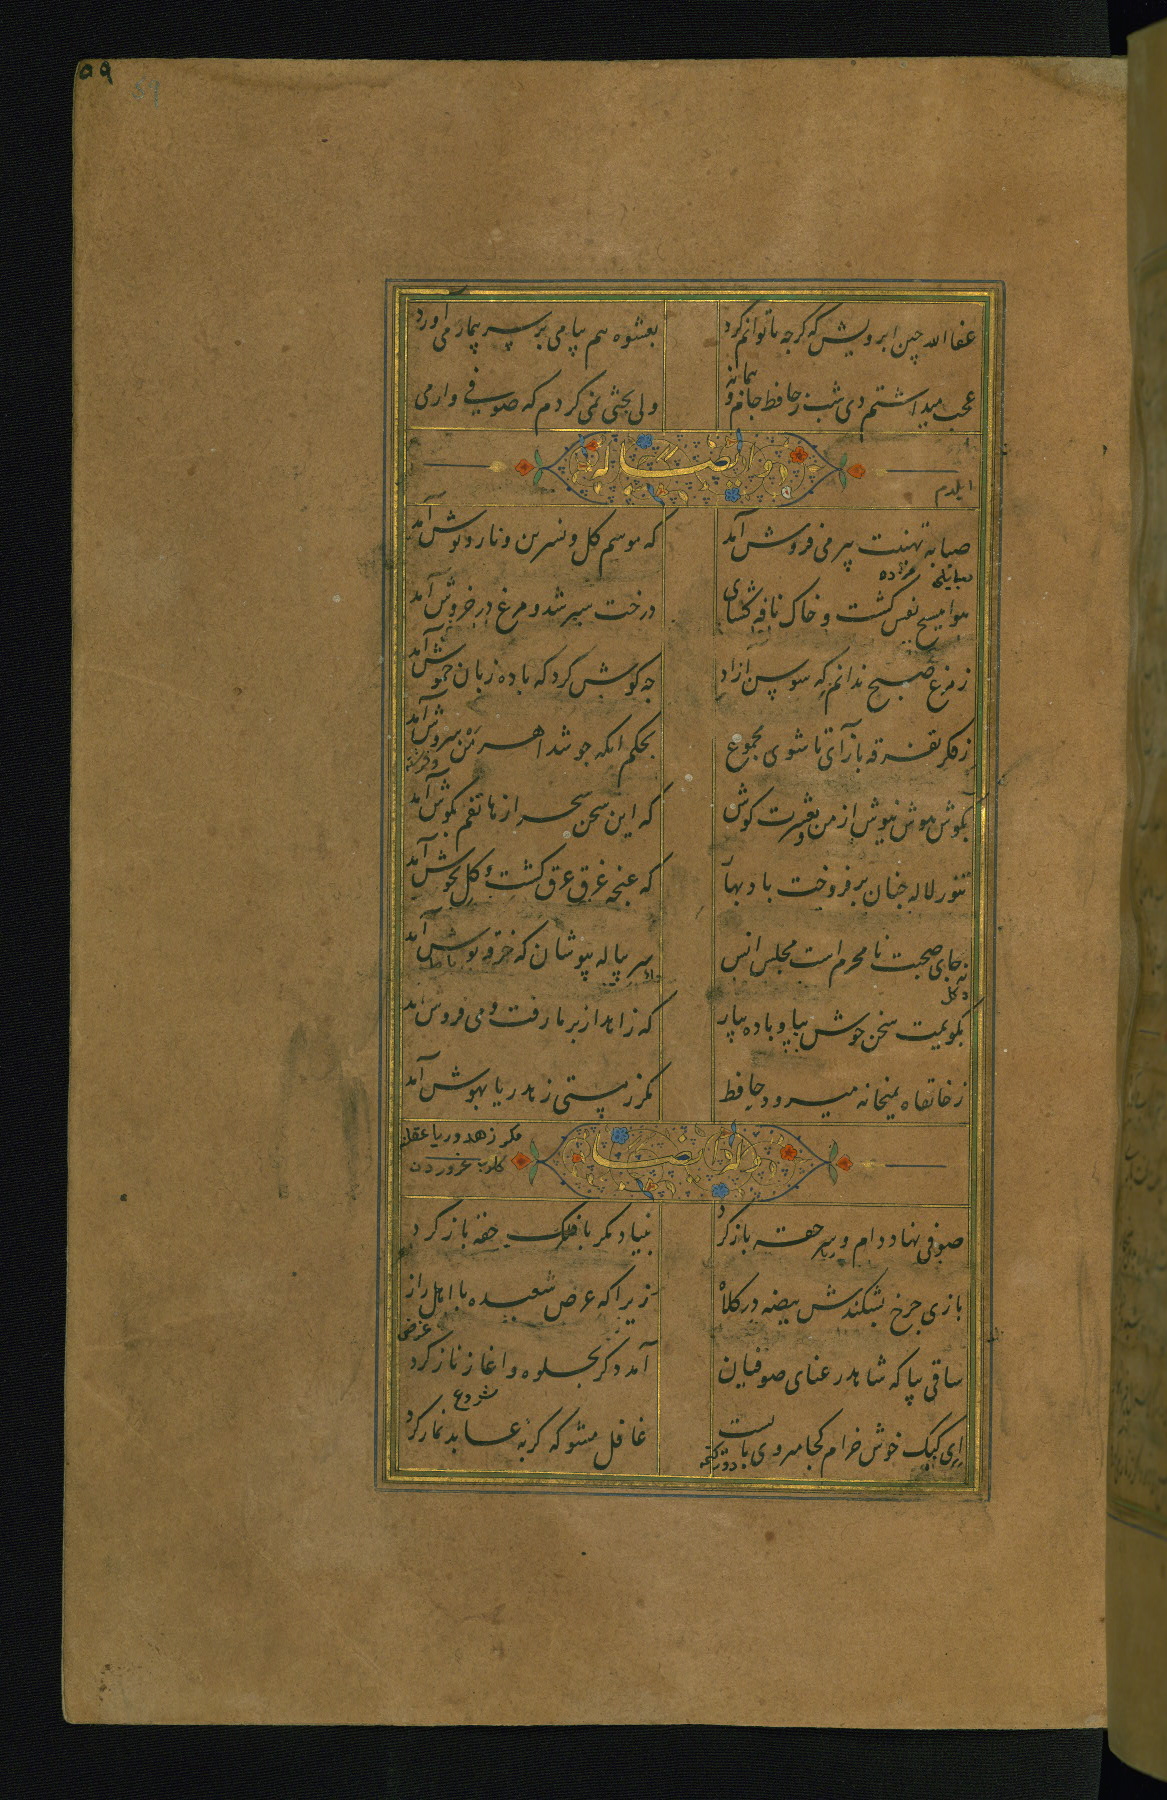 ۵۹
عفاالله چین ابرویش که کرجه ناتوانم کرد بعشوه هم پیامی بر سر بیمار می آورد
عجب میداشتم دی شب ز حافظ جام و پیمانه ولی بحثی نمی کردم که صوفی وار می
وله ایضا
ایلدم
صبا به تهنیت پیر می فروش آمد که موسم کل و نسرین و ناز و نوش آمد
مژده
هوا مسیح نفس کشت و خاک نافه کشای درخت سبز شد و مرغ در خروش آمد
ز مرغ صبح ندانم که سوسن ازاد جه کوش کرد که باده زبان خموش آمد
ز فکر تفرقه بازآی تا شوی مجموع بحکم انکه جو شد اهرمن سروش آمد
بکوش هوش نیوش از من و بعشرت کوش که این سخن سحر از هاتفم بکوش آمد
تنور لاله جنان بر فروخت باد بهار که غنجه غرق عرق کشت و کل بجوش آمد
نه جای صحبت نامحرم است مجلس انس سر پیاله بپوشان که خرقه پوش آمد
دکل
بکویمت سخن خوش بیا و باده بیار که زاهد از بر ما رفت و می فروش آمد
ز خانقاه بمیخانه میرود حافظ مکر ز مستی زهد ریا بهوش آمد
وله ایضا
مکر زهد و ریا عقلن
صوفی نهاد دام و سر حقه باز کرد بنیاد مکر با فلک حقه باز کرد
بازی جرخ بشکندش بیضه در کلاه زیرا که عرض شعبده با اهل راز
عرضی
ساقی بیا که شاهد رعنای صوفیان آمد دکر بجلوه و اغاز ناز کرد
شروع
ای کبک خوش خرام کجا میروی بایست غافل مشو که کربه عابد نماز کرد